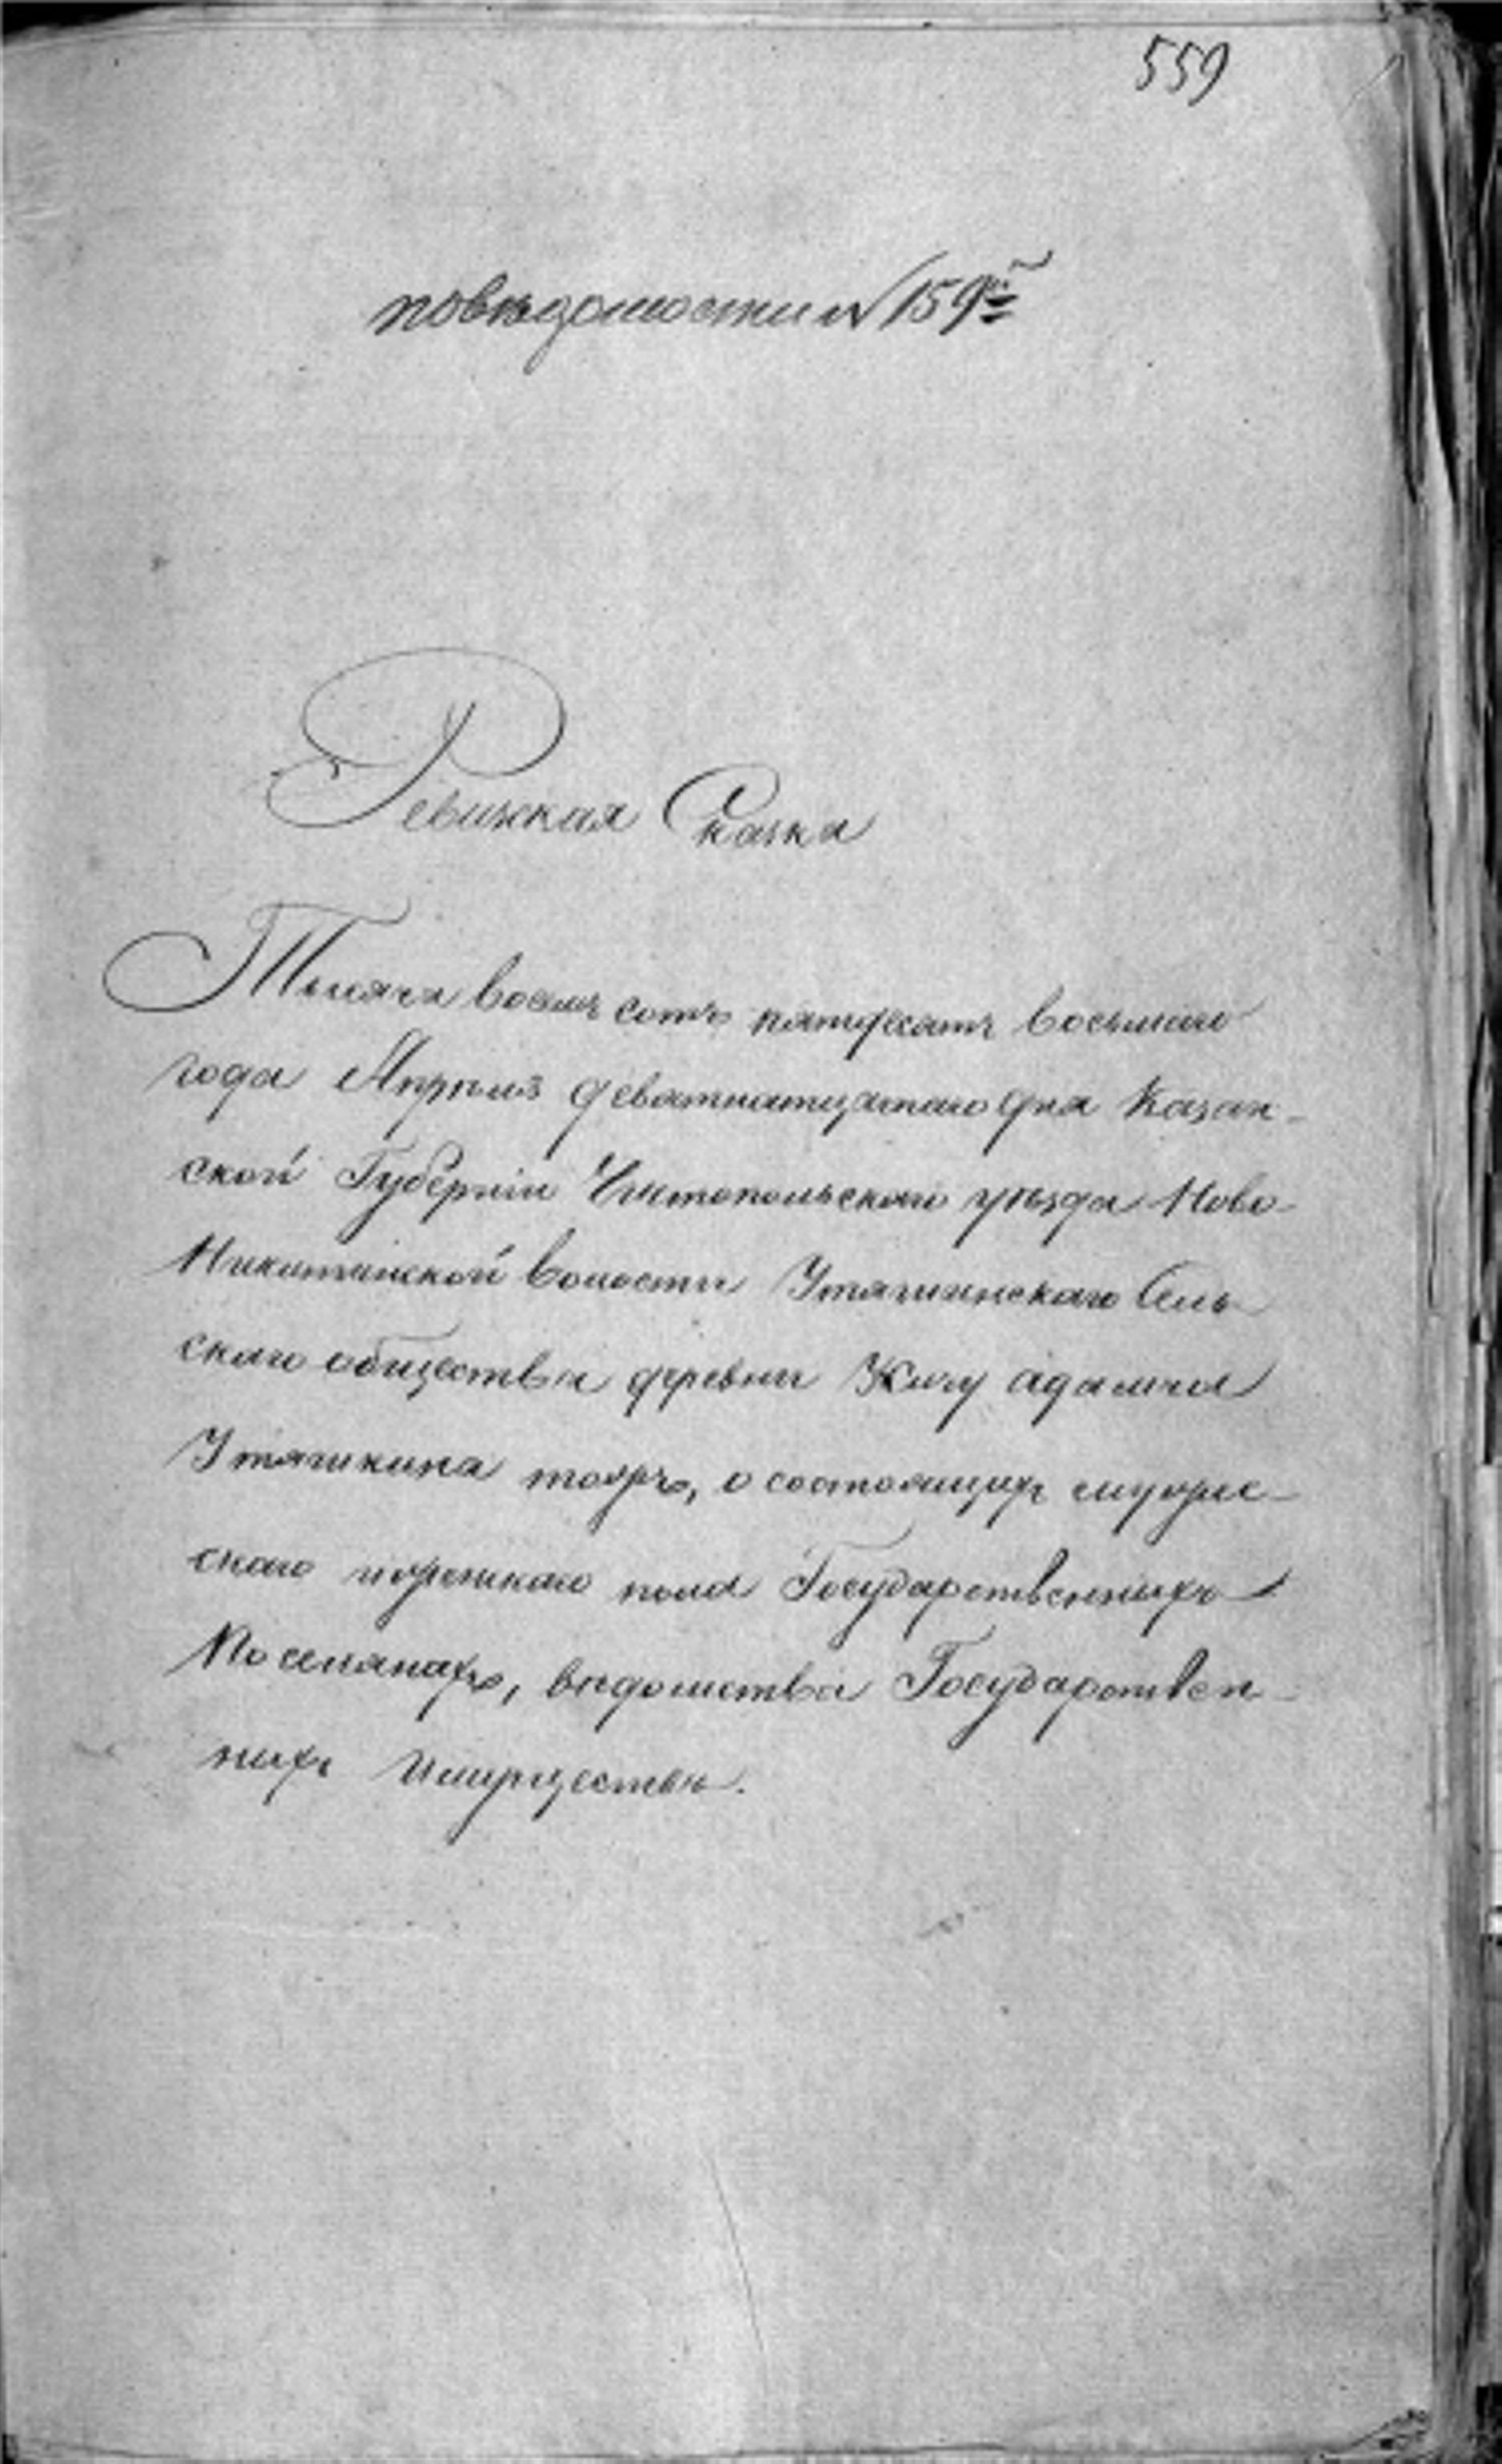 559
по ведомости N 159й
Ревижская Сказка
Тысяча восемь сотъ пятьдесятъ восьмаго
года Апреля девятнатцатаго дня Казан-
ской Губерніи Чистопольскаго уѣзда Ново-
Никитинской волости Утяшкинскаго Сель-
скаго общества деревни Жилу адамча
Утяшкина тожъ, о состоящихъ мужес-
скаго и женскаго пола Государственныхъ
Поселянахъ, вѣдомства Государствен-
ныхъ Имуществъ.